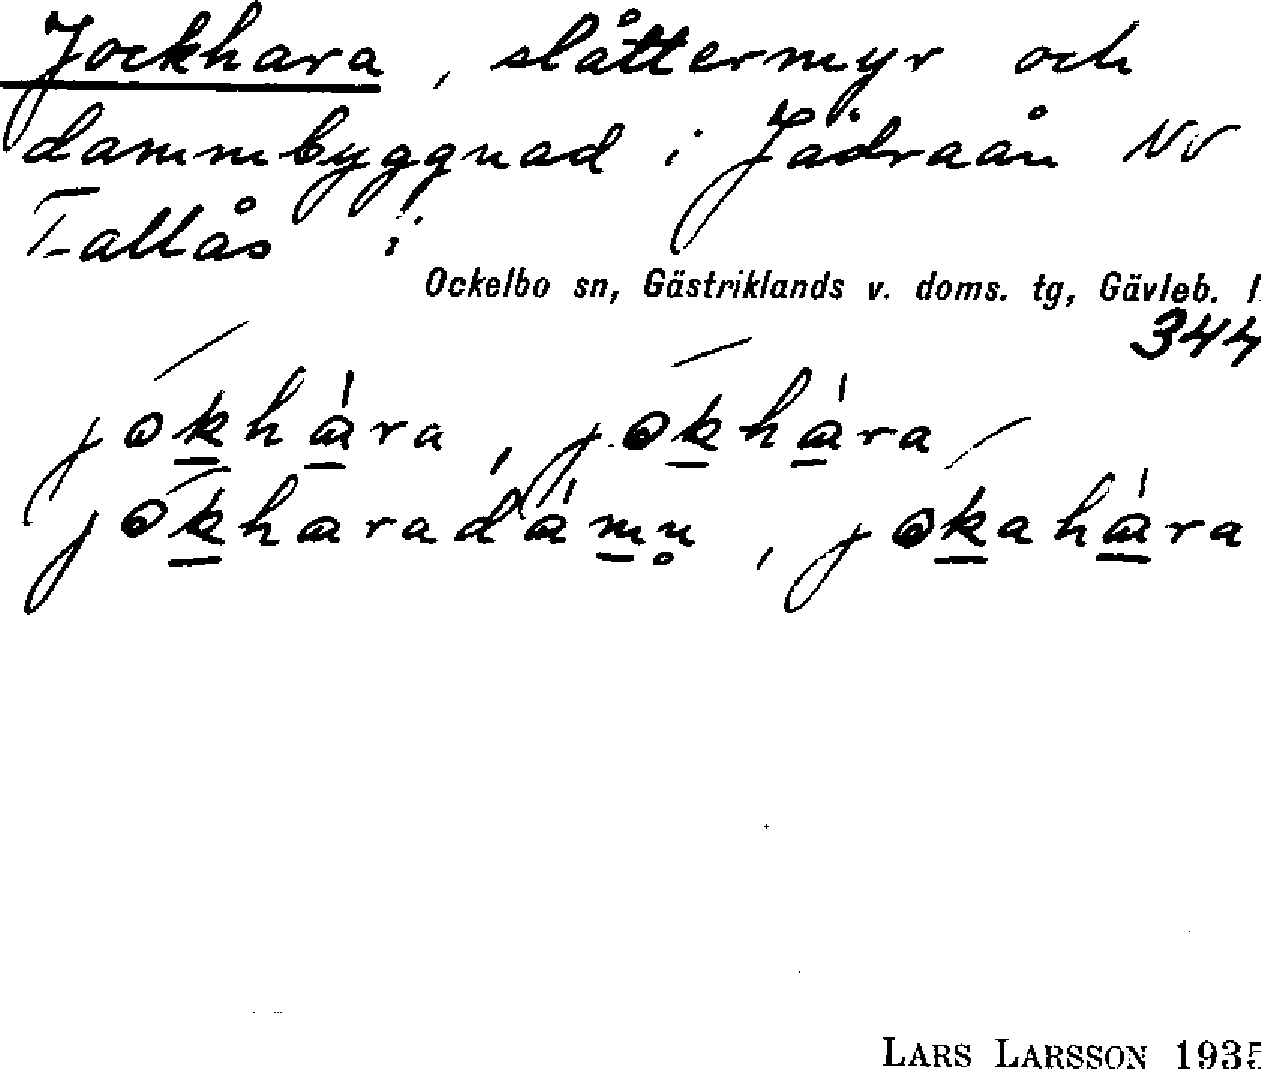 Jockhara, slåttermyr och
dammbyggnad i Jädraån NV
Tallås i
Ockelbo sn, Gästriklands v. doms. tg, Gävleb. l.
344
jokhara, jokhara
jokharadamn, jokahara
LARS LARSSON 1935